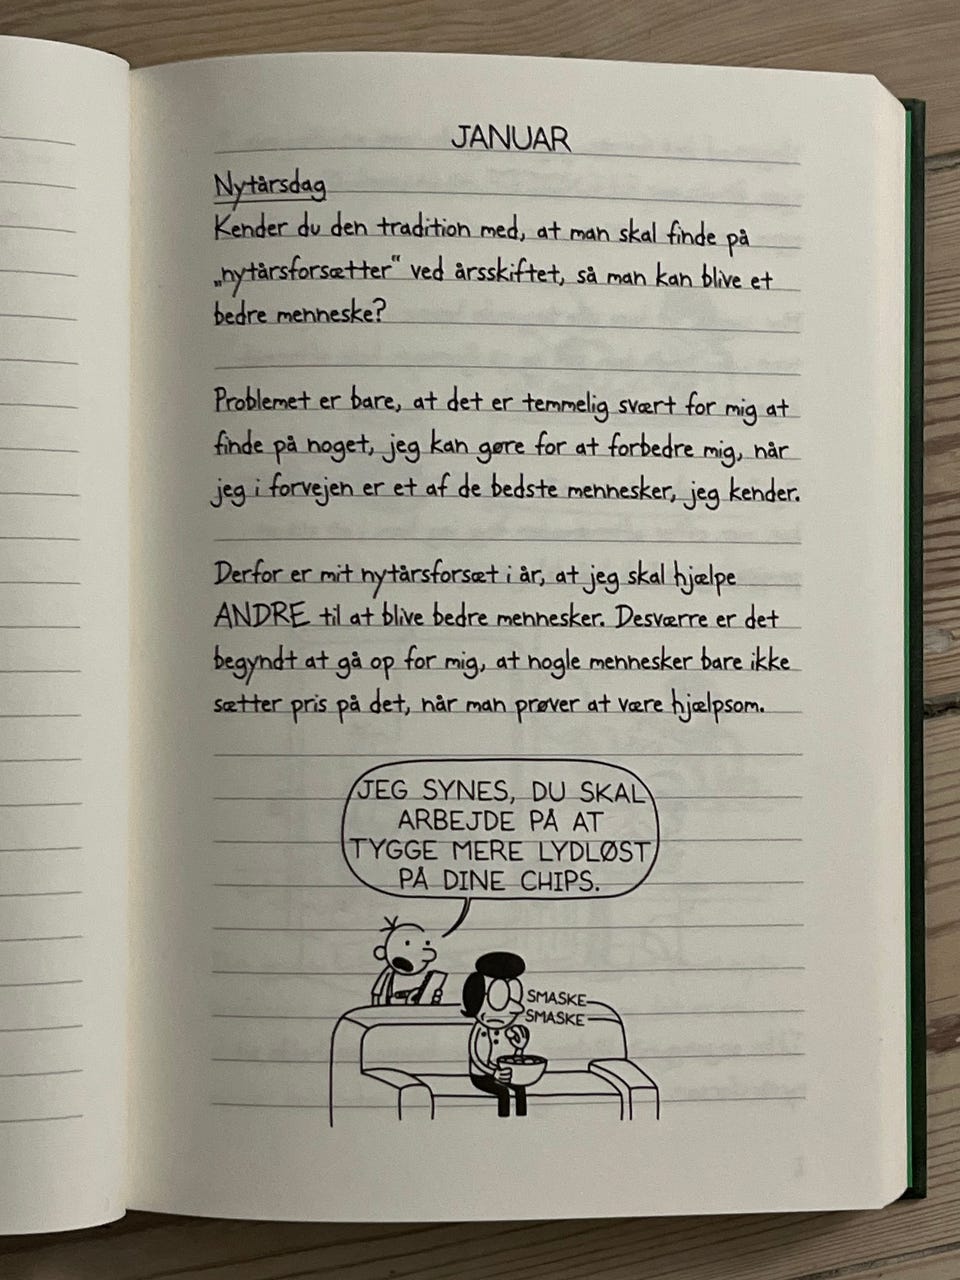 JANUAR
Nytårsdag
Kender du den tradition med, at man skal finde på
„nytårsforsætter“ ved årsskiftet, så man kan blive et
bedre menneske?
Problemet er bare, at det er temmelig svært for mig at
finde på noget, jeg kan gøre for at forbedre mig, når
jeg i forvejen er et af de bedste mennesker, jeg kender.
Derfor er mit nytårsforsæt i år, at jeg skal hjælpe
ANDRE til at blive bedre mennesker. Desværre er det
begyndt at gå op for mig, at nogle mennesker bare ikke
sætter pris på det, når man prøver at være hjælpsom.
JEG SYNES, DU SKAL
ARBEJDE PÅ AT
TYGGE MERE LYDLØST
PÅ DINE CHIPS.
SMASKE
SMASKE